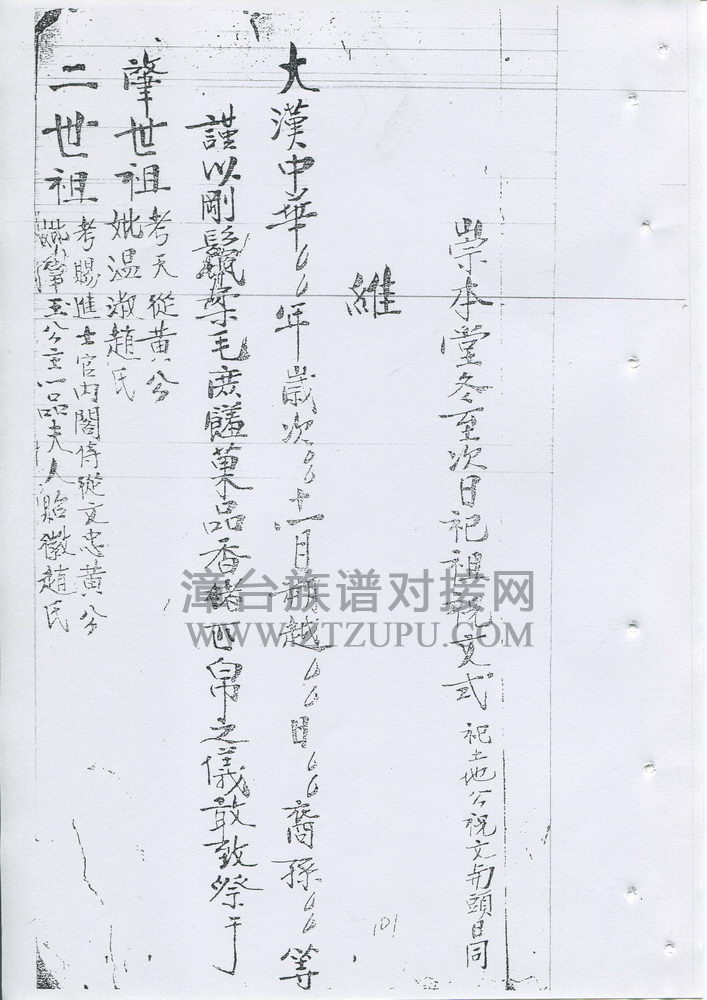 崇本堂冬至次日祀祖祝文式 祀土地公祝文
頭日同
維
大漢中華〻年歲次〻十一月朔越〻日〻裔孫〻等
謹以剛鬣柔毛庶饈菓品香
帛之儀敢致祭于
肇世祖
考天從黃公
妣溫淑趙氏
二世祖
考賜進士官內閣侍從文忠黃公
玉公主一品夫人貽徽趙氏
101
漳台族谱对接网
WWW.ZTZUPU.COM